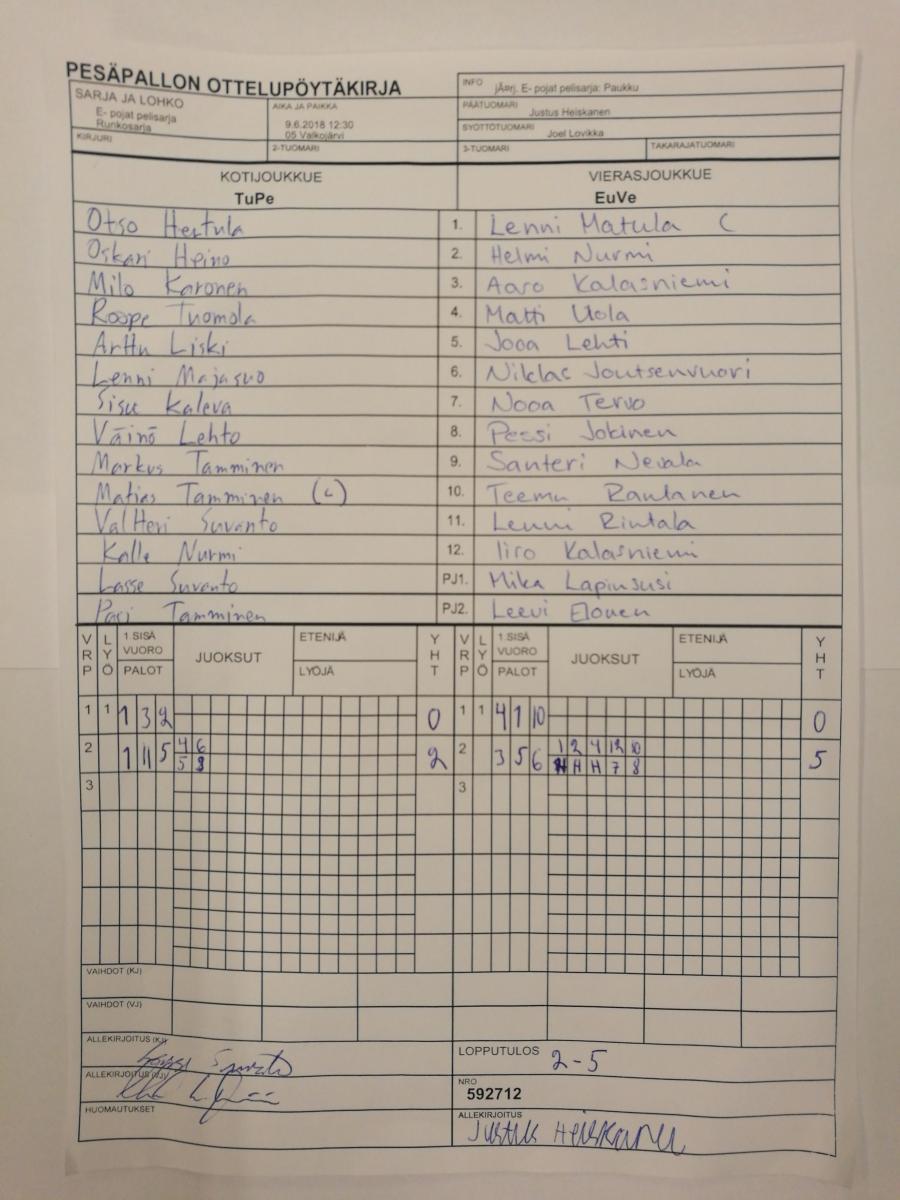 PESÄPALLON OTTELUPÖYTÄKIRJA
SARJA JA LOHKO
E- pojat pelisarja
Runkosarja
AIKA JA PAIKKA
9.6.2018 12:30
05 Valkojärvi
INFO jÃ¤rj. E- pojat pelisarja: Paukku
PÄÄTUOMARI
Justus Heiskanen
SYÖTTÖTUOMARI
Joel Lovikka
KIRJURI 2-TUOMARI 3-TUOMARI TAKARAJATUOMARI
KOTIJOUKKUE VIERASJOUKKUE
TuPe EuVe
Otso Hertula 1. Lenni Matula C
Oskari Heino 2. Helmi Nurmi
Milo Karonen 3. Aaro Kalasniemi
Roope Tuomola 4. Matti Uola
Arttu Liski 5. Jooa Lehti
Lenni Majasuo 6. Niklas Joutsenvuori
Sisu Kaleva 7. Nooa Tervo
Väinö Lehto 8. Pessi Jokinen
Markus Tamminen 9. Santeri Nevala
Matias Tamminen (c) 10. Teemu Rantanen
Valtteri Suvanto 11. Lenni Rintala
Kalle Nurmi 12. Iiro Kalasniemi
Lasse Suvanto PJ1. Mika Lapinsusi
Pasi Tamminen PJ2. Leevi Elonen
VRP LYÖ 1.SISÄ VUORO PALOT JUOKSUT ETENIJÄ LYÖJÄ YHT VRP LYÖ 1.SISÄ VUORO PALOT JUOKSUT ETENIJÄ LYÖJÄ YHT
1 1 1 3 2 0 1 1 4 1 10 0
2 1 11 5 4 6 2 2 3 5 6 1 2 4 12 10 5
5 8 H H H 7 8
3 3
VAIHDOT (KJ)
VAIHDOT (VJ)
ALLEKIRJOITUS (KJ)
LOPPUTULOS 2-5
ALLEKIRJOITUS (VJ)
NRO
592712
HUOMAUTUKSET
ALLEKIRJOITUS
Justus Heiskanen